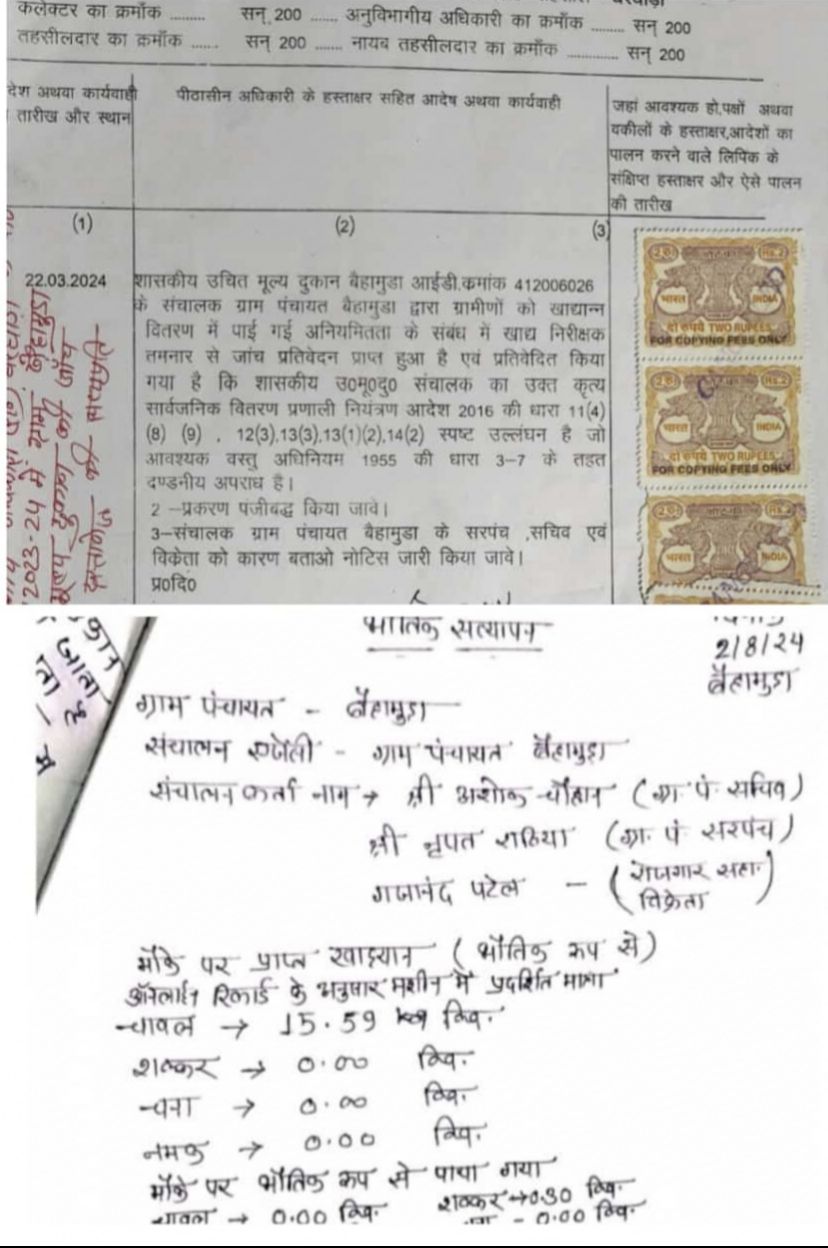 कलेक्टर का क्रमाँक ......... सन् 200 ...... अनुविभागीय अधिकारी का क्रमाँक ......... सन् 200
तहसीलदार का क्रमाँक ...... सन् 200 ...... नायब तहसीलदार का क्रमाँक .............. सन् 200
देश अथवा कार्यवाही
तारीख और स्थान
पीठासीन अधिकारी के हस्ताक्षर सहित आदेष अथवा कार्यवाही
जहां आवश्यक हो,पक्षों अथवा
वकीलों के हस्ताक्षर,आदेशों का
पालन करने वाले लिपिक के
संक्षिप्त हस्ताक्षर और ऐसे पालन
की तारीख
(1) (2) (3)
22.03.2024
शासकीय उचित मूल्य दुकान बैहामुडा आईडी.कमांक 412006026
के संचालक ग्राम पंचायत बैहामुडा द्वारा ग्रामीणों को खाद्यान्न
वितरण में पाई गई अनियमितता के संबंध में खाद्य निरीक्षक
तमनार से जांच प्रतिवेदन प्राप्त हुआ है एवं प्रतिवेदित किया
गया है कि शासकीय उ0मू0दु0 संचालक का उक्त कृत्य
सार्वजनिक वितरण प्रणाली नियंत्रण आदेश 2016 की धारा 11(4)
(8) (9) , 12(3),13(3),13(1)(2),14(2) स्पष्ट उल्लंघन है जो
आवश्यक वस्तु अधिनियम 1955 की धारा 3–7 के तहत
दण्डनीय अपराध है।
2 –प्रकरण पंजीबद्ध किया जावे।
3–संचालक ग्राम पंचायत बैहामुडा के सरपंच ,सचिव एवं
विकेता को कारण बताओ नोटिस जारी किया जावे।
प्र0दि0
2023-24 में ग्राम बैहामुडा
मूल्य दुकान की जाँच
दस्तावेज की सत्यप्रति
भारत INDIA
दो रुपये TWO RUPEES
FOR COPYING FEES ONLY
भारत INDIA
दो रुपये TWO RUPEES
FOR COPYING FEES ONLY
भारत INDIA
भौतिक सत्यापन
2/8/24
बैहामुडा
ग्राम पंचायत - बैहामुडा
संचालन एजेंसी - ग्राम पंचायत बैहामुडा
संचालन कर्ता नाम → श्री अशोक चौहान (ग्रा. पं. सचिव)
श्री नृपत राठिया (ग्रा. पं सरपंच)
गजानंद पटेल - (रोजगार सहा. विक्रेता)
मौके पर प्राप्त खाद्यान (भौतिक रूप से)
ऑनलाईन रिकार्ड के अनुसार मशीन में प्रदर्शित मात्रा
चावल → 15.59 क्वि.
शक्कर → 0.00 क्वि.
चना → 0.00 क्वि.
नमक → 0.00 क्वि.
मौके पर भौतिक रूप से पाया गया
चावल → 0.00 क्वि. शक्कर → 0.30 क्वि.
- 0.00 क्वि.